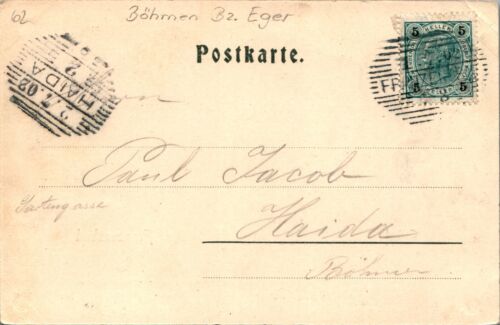 62 Böhmen Bz. Eger
Postkarte.
5 HELLER 5
5 5
FR
HAIDA
2. 7. 02
Paul Jacob
Gartengasse
Haida
Böhmen